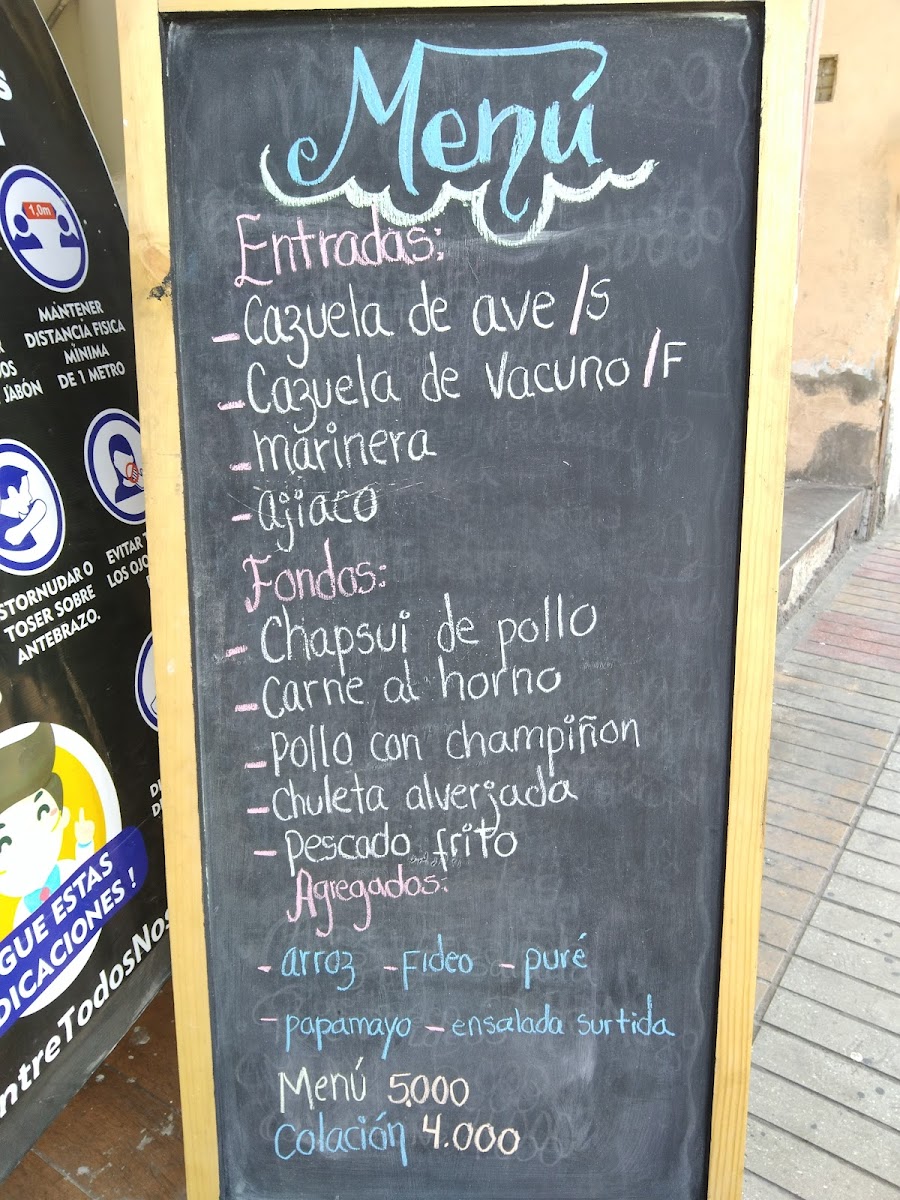 Menú
Entradas:
- Cazuela de ave/s
- Cazuela de Vacuno/F
- marinera
- ajiaco
Fondos:
- Chapsui de pollo
- Carne al horno
- Pollo con champiñon
- Chuleta alverjada
- pescado frito
Agregados:
- arroz - Fideo - puré
- papamayo - ensalada surtida
Menú 5.000
Colación 4.000
1,0m
MANTENER
DISTANCIA FISICA
MÍNIMA
DE 1 METRO
JABÓN
EVITAR
LOS OJO
STORNUDAR O
TOSER SOBRE
ANTEBRAZO.
GUE ESTAS
DICACIONES !
ntreTodosNos